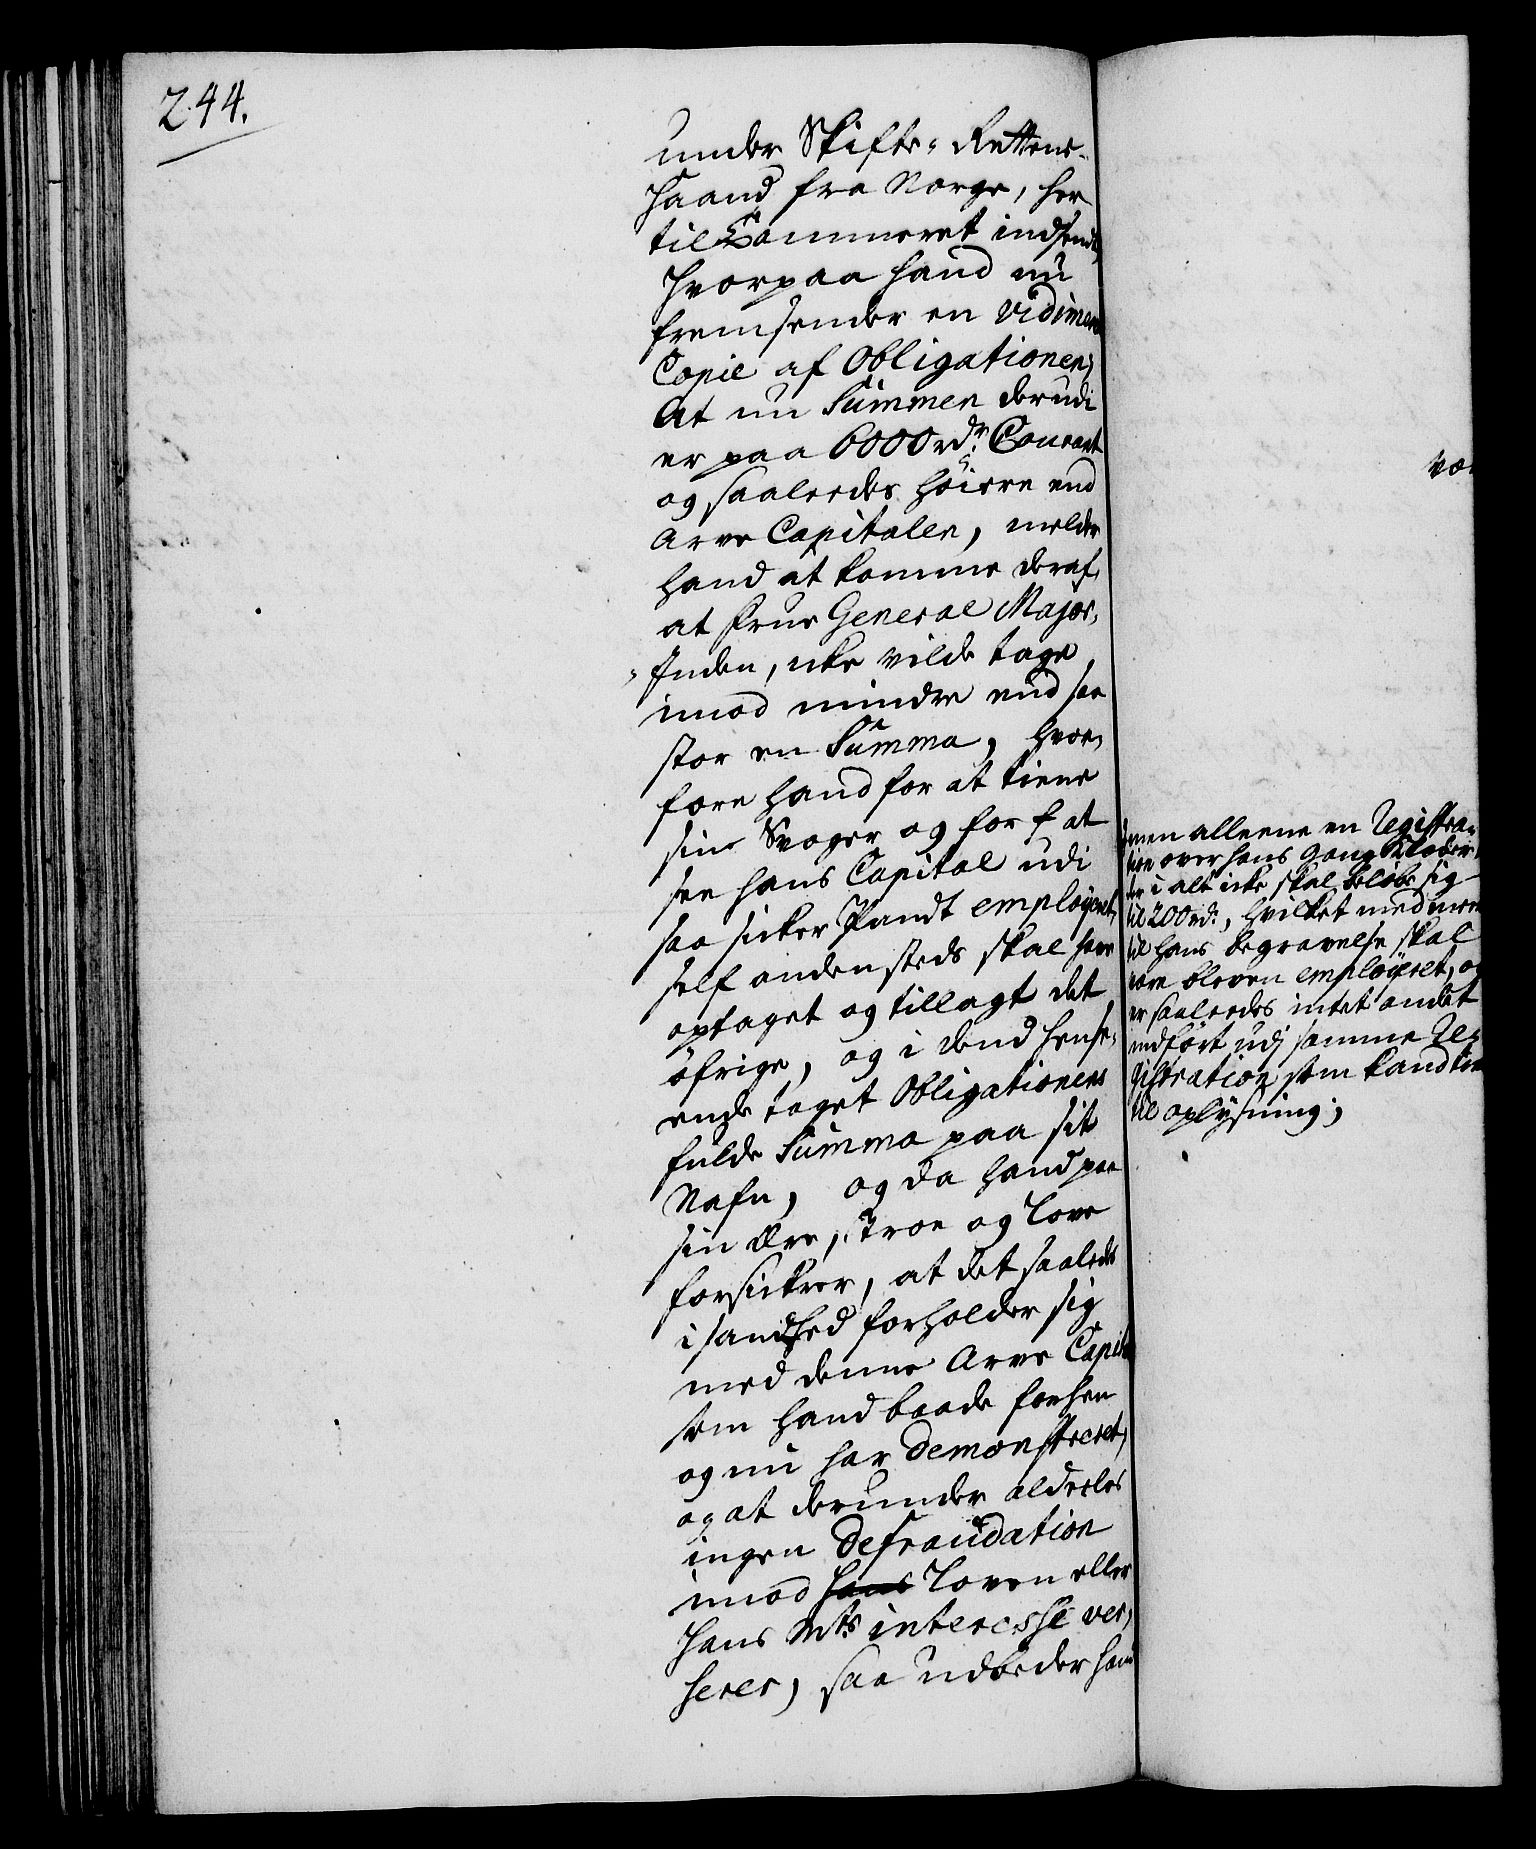 244.
under Skifte-Rettens
Haand fra Norge, her
til Cammeret indsendt,
hvorpaa hand nu
fremsender en vidimeret
Copie af Obligationen,
At nu Summen derudi
er paa 6000 rdr. Courant
og saaleedes høiere end
Arve Capitalen, melder
hand at komme deraf,
at Frue General Major-
Inden, icke vilde tage
imod mindre end saa
stor en Summa, hvor-
fore hand for at tiene
sin Svoger og for at
see hans Capital udi
saa sicker Pandt employeret,
self andensteds skal have
optaget og tillagt det
øfrige, og i dend hense-
ende taget Obligationens
fulde Summa paa sit
Nafn, og da hand paa
sin Ære, Troe og Love
forsickrer, at det saaledes
i sandhed forholder sig
med denne Arve Capital
som hand baade forhen
og nu har demonstreret,
og at derunder aldeeles
ingen Defraudation
imod hans Loven eller
Hans Mts interesse ver-
serer, saa udbeder hand
men alleene en Registra-
tion over hans Gang Klæder,
der i alt icke skal beløbe sig
til 200 rd., hvilket med meere
til hans begravelse skal
være bleven employeret, og
er saaleedes intet andet
indført udj samme Re-
gistration som kand tiene
til oplysning;